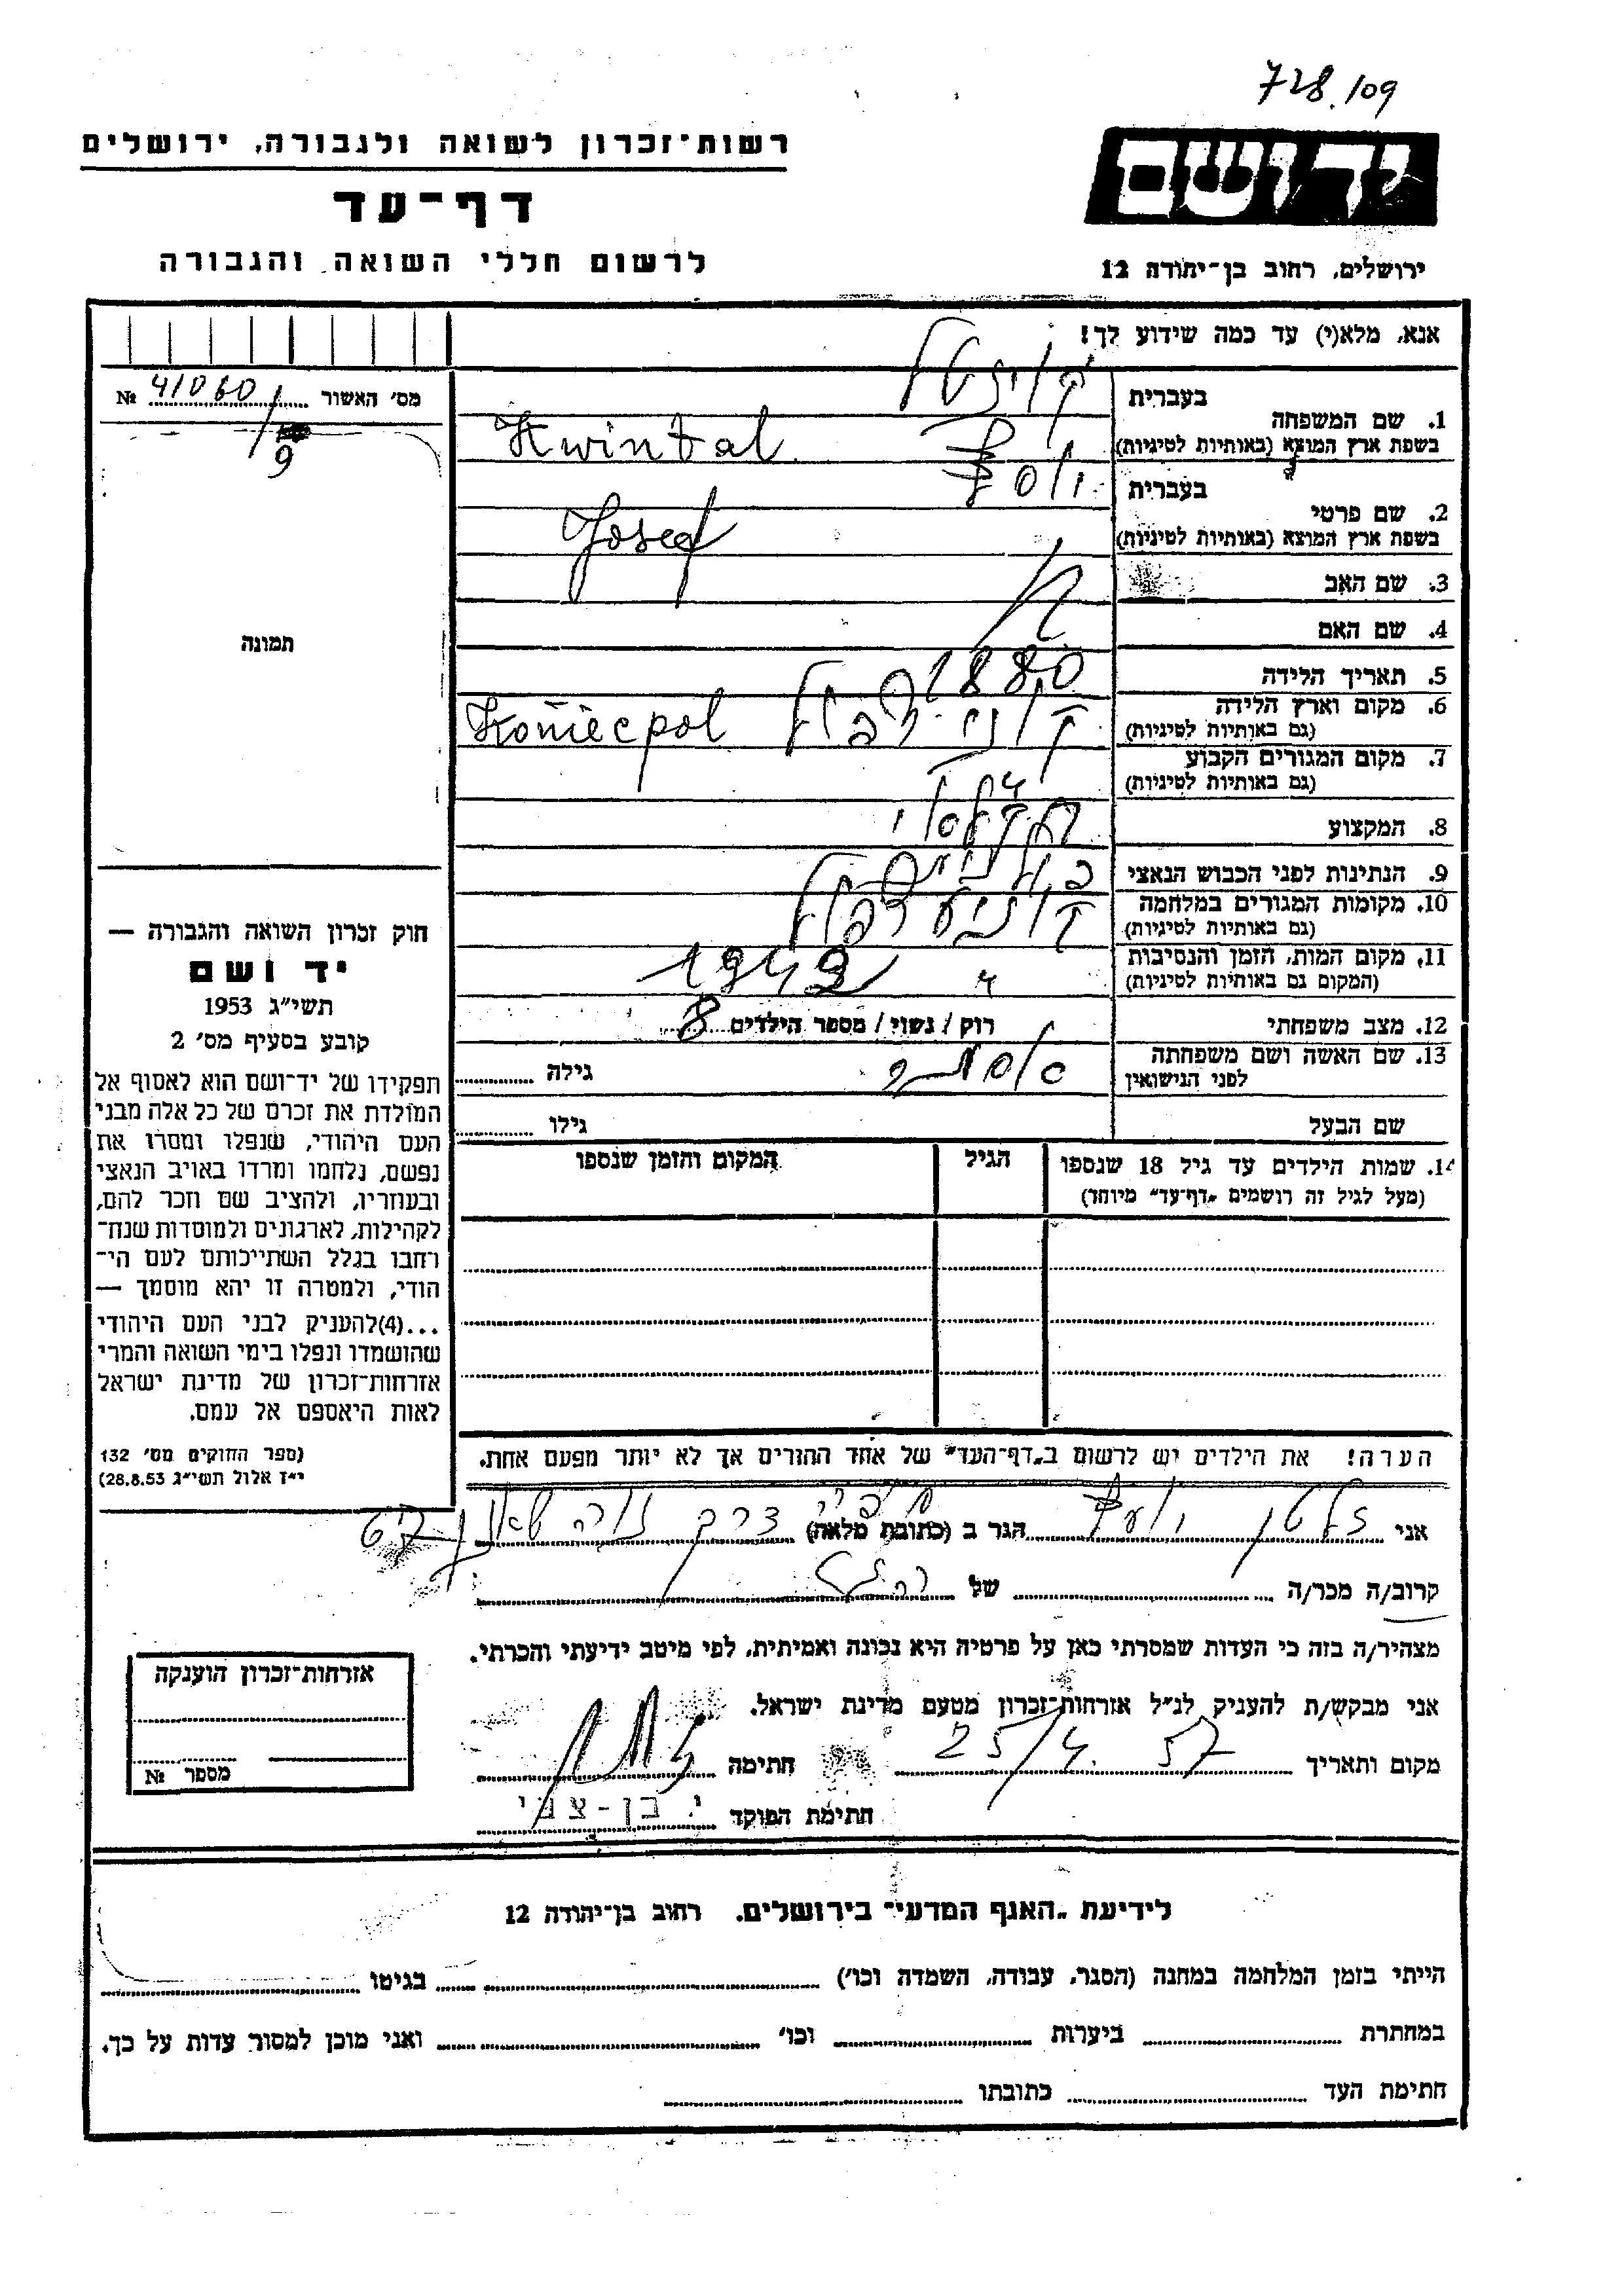 728/109
רשות־זכרון לשואה ולגבורה, ירושלים
יד ושם
דף־עד
לרשום חללי השואה והגבורה
ירושלים, רחוב בן־יהודה 12
אנא, מלא(י) עד כמה שידוע לך!
מס׳ האשור № 41060/9
1. שם המשפחה
בעברית
בשפת ארץ המוצא (באותיות לטיניות) Kwintal
2. שם פרטי
בעברית יוסף
בשפת ארץ המוצא (באותיות לטיניות) Josef
3. שם האב
4. שם האם
5. תאריך הלידה 1880
6. מקום וארץ הלידה
(גם באותיות לטיניות) Koniecpol
7. מקום המגורים הקבוע
(גם באותיות לטיניות)
8. המקצוע
9. הנתינות לפני הכבוש הנאצי
10. מקומות המגורים במלחמה
(גם באותיות לטיניות)
11. מקום המות, הזמן והנסיבות
(המקום גם באותיות לטיניות)
12. מצב משפחתי רוק / נשוי / מספר הילדים 8
13. שם האשה ושם משפחתה
לפני הנישואין
גילה
שם הבעל גילו
14. שמות הילדים עד גיל 18 שנספו
(מעל לגיל זה רושמים „דף־עד״ מיוחד)
הגיל
המקום והזמן שנספו
תמונה
חוק זכרון השואה והגבורה —
יד ושם
תשי״ג 1953
קובע בסעיף מס׳ 2
תפקידו של יד־ושם הוא לאסוף אל
המולדת את זכרם של כל אלה מבני
העם היהודי, שנפלו ומסרו את
נפשם, נלחמו ומרדו באויב הנאצי
ובעוזריו, ולהציב שם וזכר להם,
לקהילות, לארגונים ולמוסדות שנח־
רחבו בגלל השתייכותם לעם הי־
הודי, ולמטרה זו יהא מוסמך —
...(4)להעניק לבני העם היהודי
שהושמדו ונפלו בימי השואה והמרי
אזרחות־זכרון של מדינת ישראל
לאות היאספם אל עמם.
(ספר החוקים מס׳ 132
י״ז אלול תשי״ג 28.8.53)
הערה! את הילדים יש לרשום ב„דף־העד״ של אחד ההורים אך לא יותר מפעם אחת.
אני הגר ב (כתובת מלאה)
קרוב/ה מכר/ה של
מצהיר/ה בזה כי העדות שמסרתי כאן על פרטיה היא נכונה ואמיתית, לפי מיטב ידיעתי והכרתי.
אני מבקש/ת להעניק לנ״ל אזרחות־זכרון מטעם מדינת ישראל.
מקום ותאריך 25/4. 57 חתימה
חתימת הפוקד י. בן-צבי
אזרחות־זכרון הוענקה
מספר №
לידיעת „האגף המדעי״ בירושלים, רחוב בן־יהודה 12
הייתי בזמן המלחמה במחנה (הסגר, עבודה, השמדה וכו׳) בגיטו
במחתרת ביערות וכו׳ ואני מוכן למסור עדות על כך.
חתימת העד כתובתו